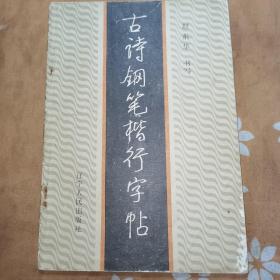 古诗钢笔楷行字帖
书写
辽宁人民出版社